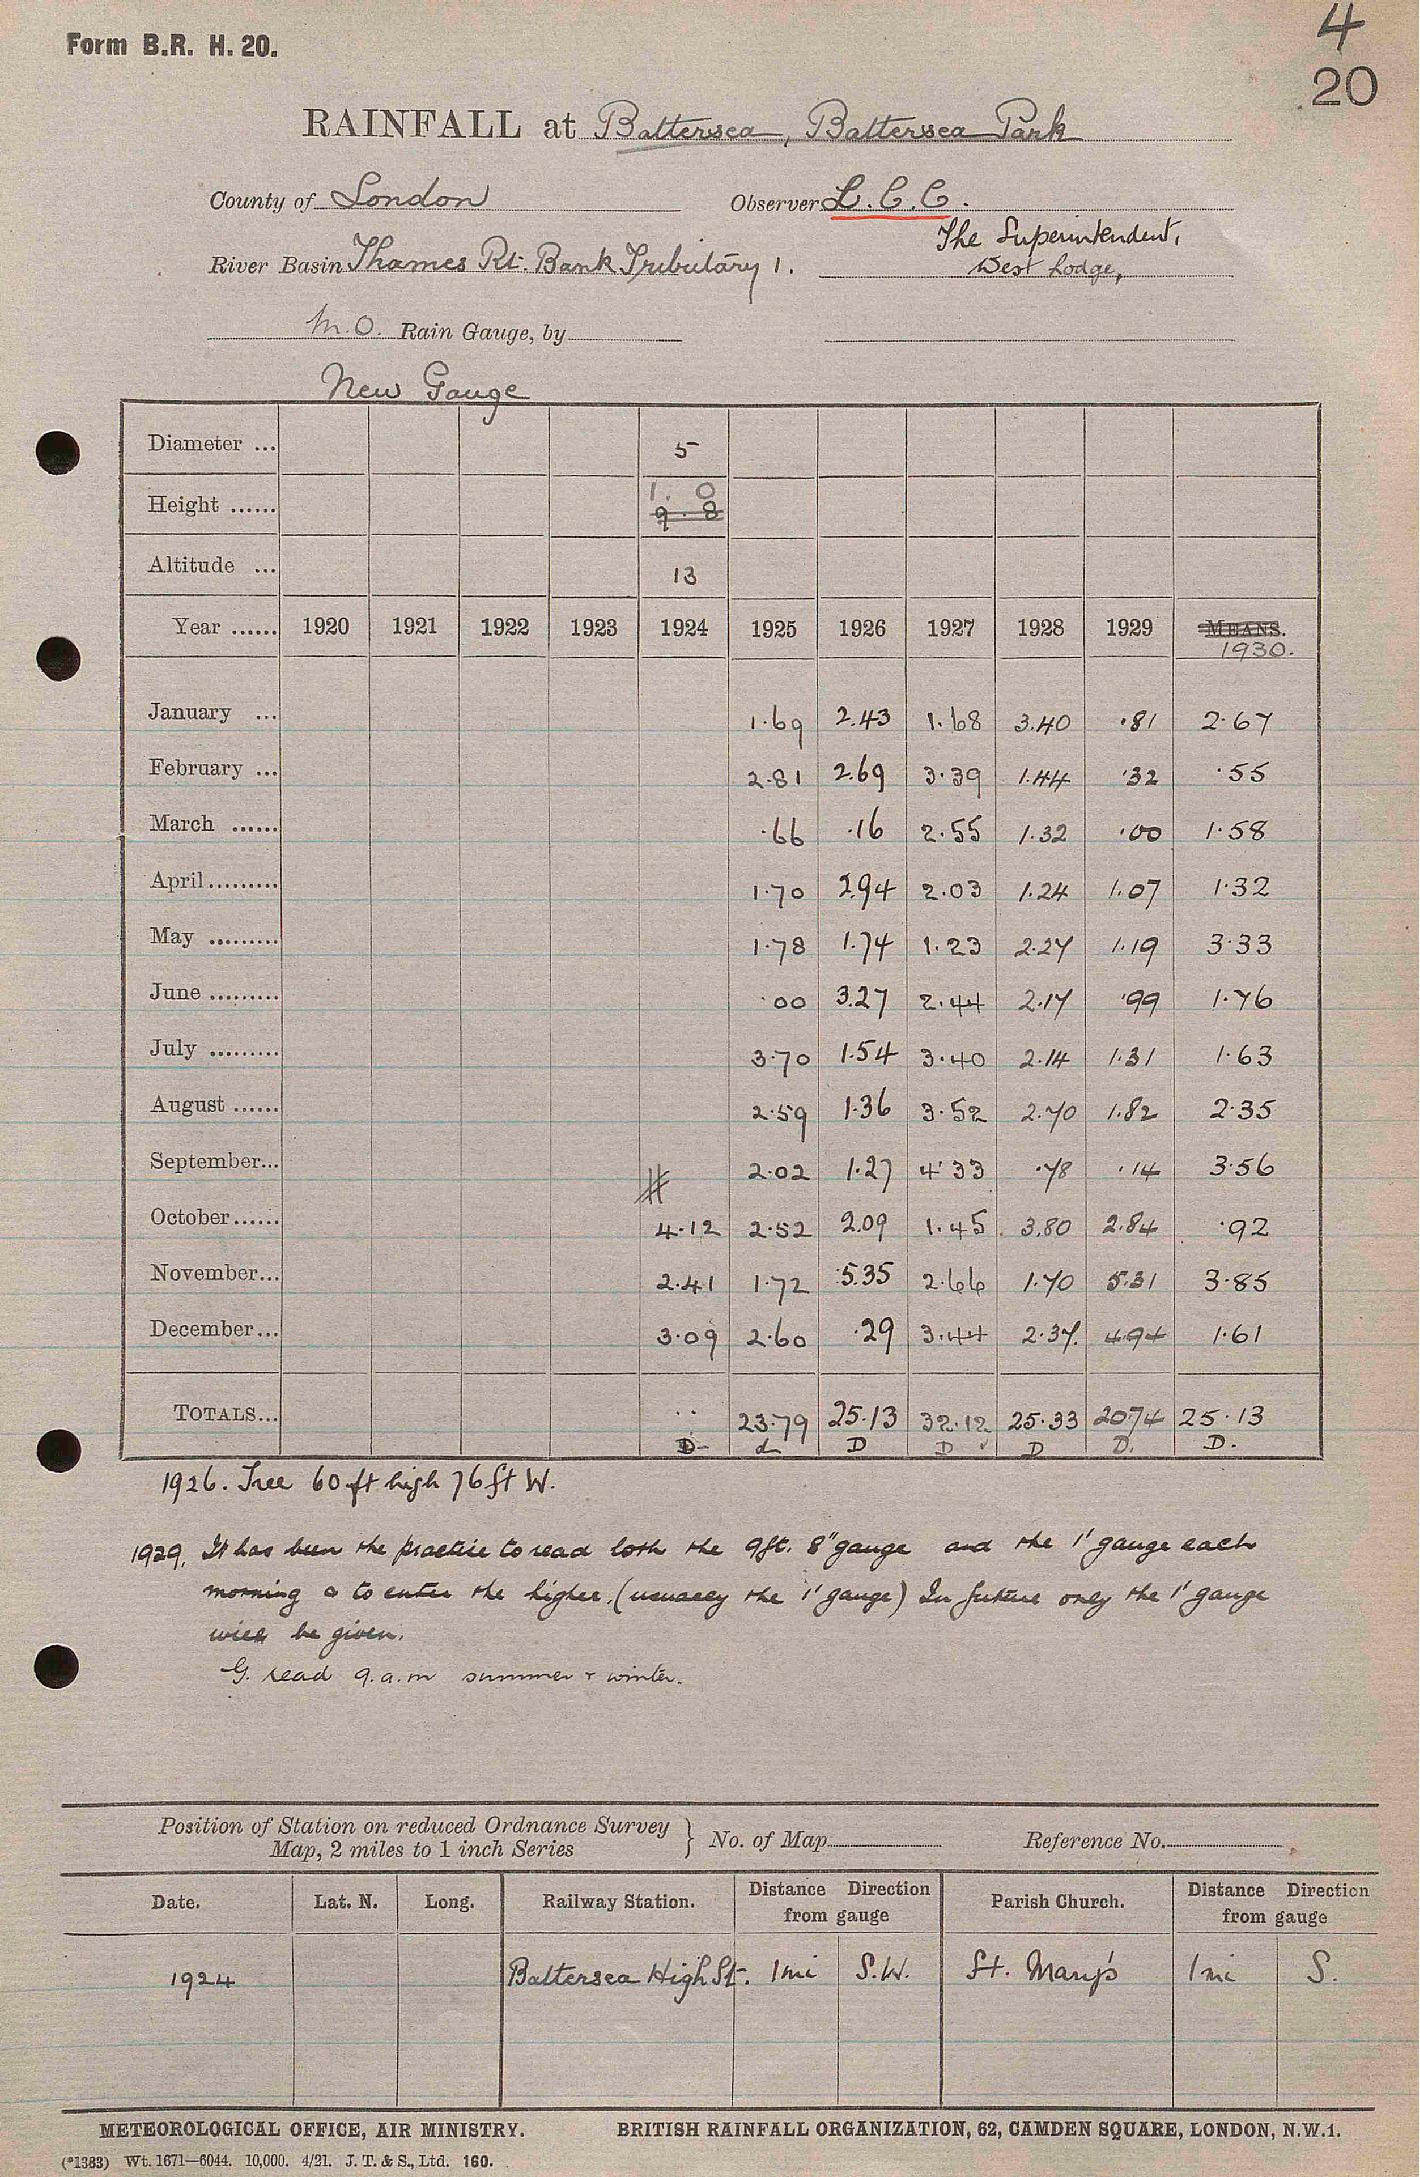 Form B.R. H. 20.
4
20
RAINFALL at Battersea, Battersea Park
County of London Observer L.C.C.
The Superintendent,
River Basin Thames Rt. Bank Tributary 1. West Lodge,
M.O. Rain Gauge, by
New Gauge
Diameter ... 5
Height ...... 1. 0
9. 8
Altitude ... 13
Year ...... 1920 1921 1922 1923 1924 1925 1926 1927 1928 1929 MEANS.
1930.
January ... 1.69 2.43 1.68 3.40 .81 2.67
February ... 2.81 2.69 3.39 1.44 .32 .55
March ...... .66 .16 2.55 1.32 .00 1.58
April......... 1.70 2.94 2.03 1.24 1.07 1.32
May ......... 1.78 1.74 1.23 2.27 1.19 3.33
June ......... .00 3.27 2.44 2.17 .99 1.76
July ......... 3.70 1.54 3.40 2.14 1.31 1.63
August ...... 2.59 1.36 3.52 2.70 1.82 2.35
September... 2.02 1.27 4.33 .78 .14 3.56
October...... 4.12 2.52 2.09 1.45 3.80 2.84 .92
November... 2.41 1.72 5.35 2.66 1.70 5.31 3.85
December... 3.09 2.60 .29 3.44 2.37 4.94 1.61
TOTALS... .. 23.79 25.13 32.12 25.33 20.74 25.13
D- d D D ✓ D D. D.
1926. Tree 60 ft high 76 ft W.
1929. It has been the practice to read both the 9ft. 8" gauge and the 1' gauge each
morning & to enter the higher, (usually the 1' gauge) In future only the 1' gauge
will be given.
G. read 9.a.m summer + winter.
Position of Station on reduced Ordnance Survey
Map, 2 miles to 1 inch Series } No. of Map Reference No.
Date. Lat. N. Long. Railway Station. Distance Direction from gauge Parish Church. Distance Direction from gauge
1924 Battersea High St. 1mi S.W. St. Mary's 1mi S.
METEOROLOGICAL OFFICE, AIR MINISTRY. BRITISH RAINFALL ORGANIZATION, 62, CAMDEN SQUARE, LONDON, N.W.1.
(*1383) Wt. 1671—6044. 10,000. 4/21. J. T. & S., Ltd. 160.